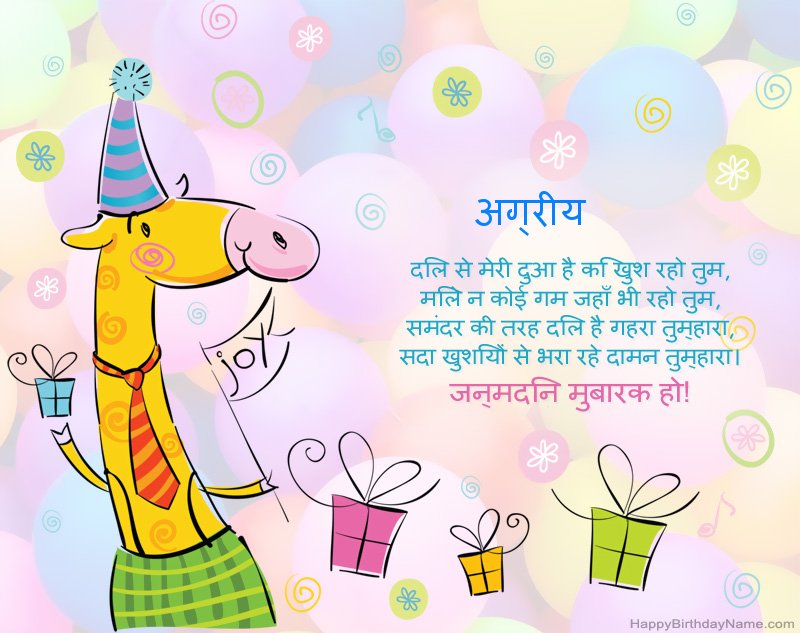 अग्‌रीय
दलि से मेरी दुआ है कि खुश रहो तुम,
मलिे न कोई गम जहाँ भी रहो तुम,
समंदर की तरह दलि है गहरा तुम्‌हारा,
सदा खुशयिों से भरा रहे दामन तुम्‌हारा।
जन्‌मदनि मुबारक हो!
joy
HappyBirthdayName.com